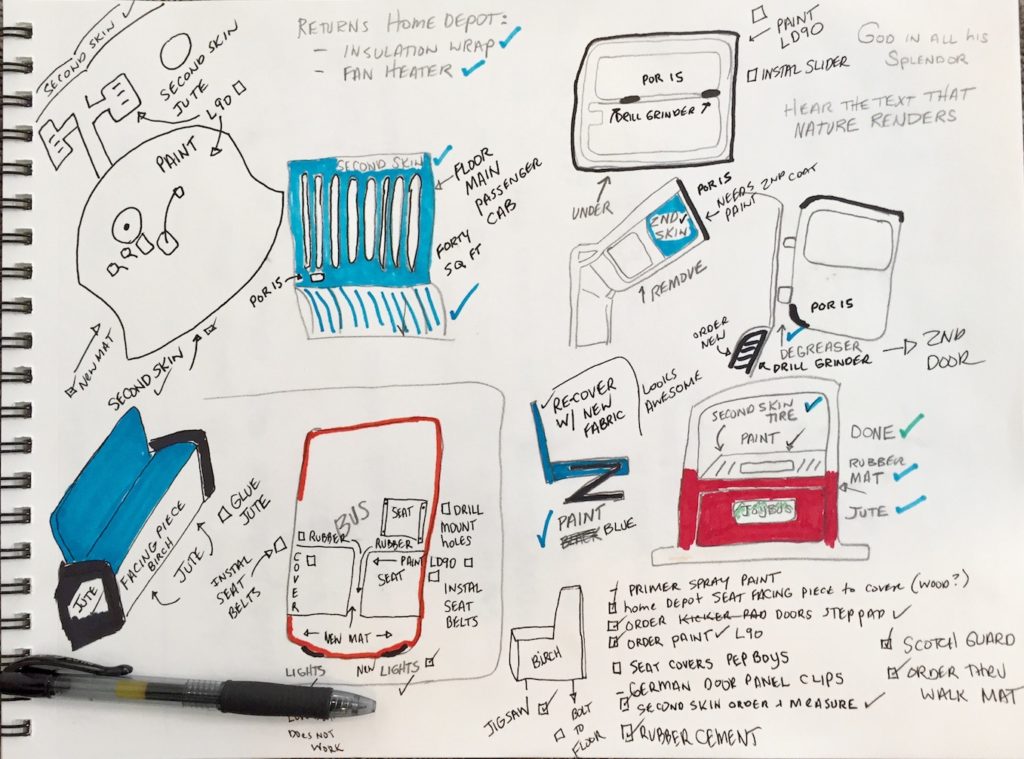 SECOND SKIN ✓
SECOND SKIN
JUTE
L90 ☐
PAINT
NEW MAT
SECOND SKIN
RETURNS HOME DEPOT:
- INSULATION WRAP ✓
- FAN HEATER ✓
SECOND SKIN ✓
FLOOR
MAIN
PASSENGER
CAB
FORTY
SQ FT
POR 15
☐ PAINT
LD90
☐ INSTAL SLIDER
POR 15
DRILL GRINDER
UNDER
GOD IN ALL HIS
SPLENDOR
HEAR THE TEXT THAT
NATURE RENDERS
POR 15
NEEDS 2ND COAT
PAINT
2ND ✓
SKIN
REMOVE
POR 15
ORDER
NEW
DEGREASER
DRILL GRINDER
2ND
DOOR
FACING PIECE
BIRCH
JUTE
JUTE
☐ GLUE
JUTE
INSTAL
SEAT
BELTS
BUS
SEAT
☐ RUBBER
RUBBER
COVER
PAINT LD90 ☐
SEAT
NEW MAT
☐ DRILL
MOUNT
HOLES
☐ INSTAL
SEAT
BELTS
LIGHTS
NEW LIGHTS
DOES NOT
WORK
RE-COVER
W/ NEW
FABRIC
LOOKS
AWESOME
PAINT
BLACK BLUE
SECOND SKIN
TIRE
PAINT
JOYBUS
DONE ✓
RUBBER
MAT ✓
JUTE ✓
BIRCH
JIGSAW
☐ BOLT
TO
FLOOR
PRIMER SPRAY PAINT
HOME DEPOT SEAT FACING PIECE TO COVER (WOOD?)
ORDER KICKER PAD DOORS STEP PAD ✓
ORDER PAINT ✓ L90
☐ SEAT COVERS PEP BOYS
- GERMAN DOOR PANEL CLIPS
SECOND SKIN ORDER + MEASURE ✓
RUBBER CEMENT
SCOTCH GUARD
ORDER THRU
WALK MAT